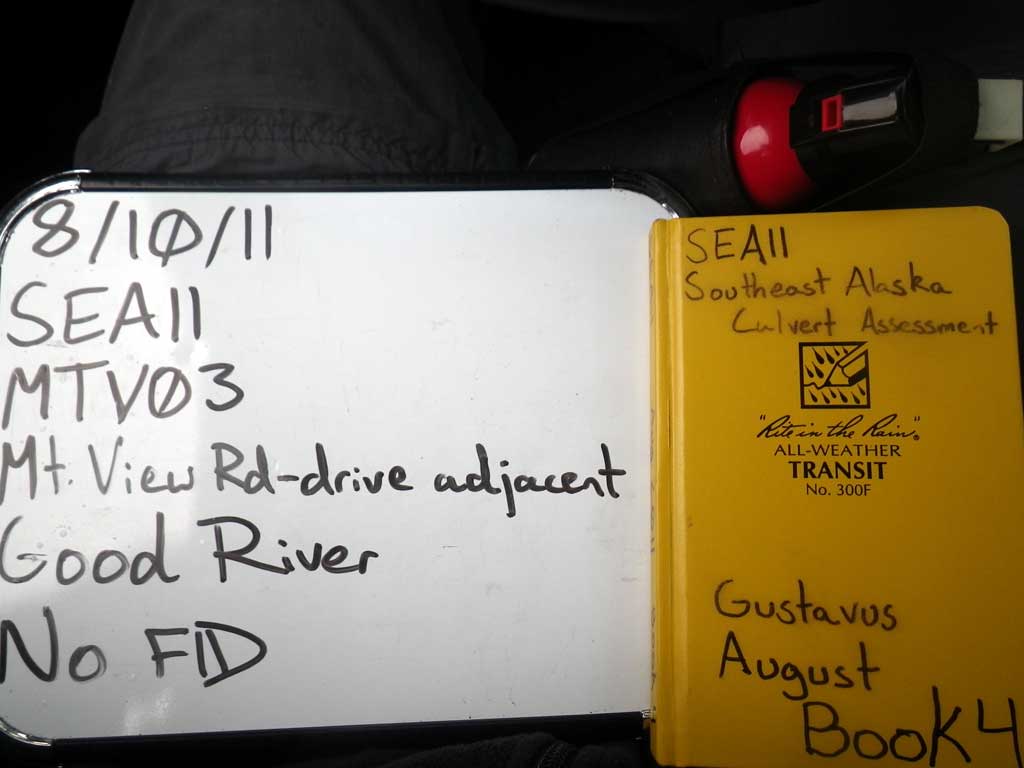 8/10/11
SEA11
MTV03
Mt. View Rd-drive adjacent
Good River
No FID
SEA11
Southeast Alaska
Culvert Assessment
"Rite in the Rain"®
ALL-WEATHER
TRANSIT
No. 300F
Gustavus
August
Book 4